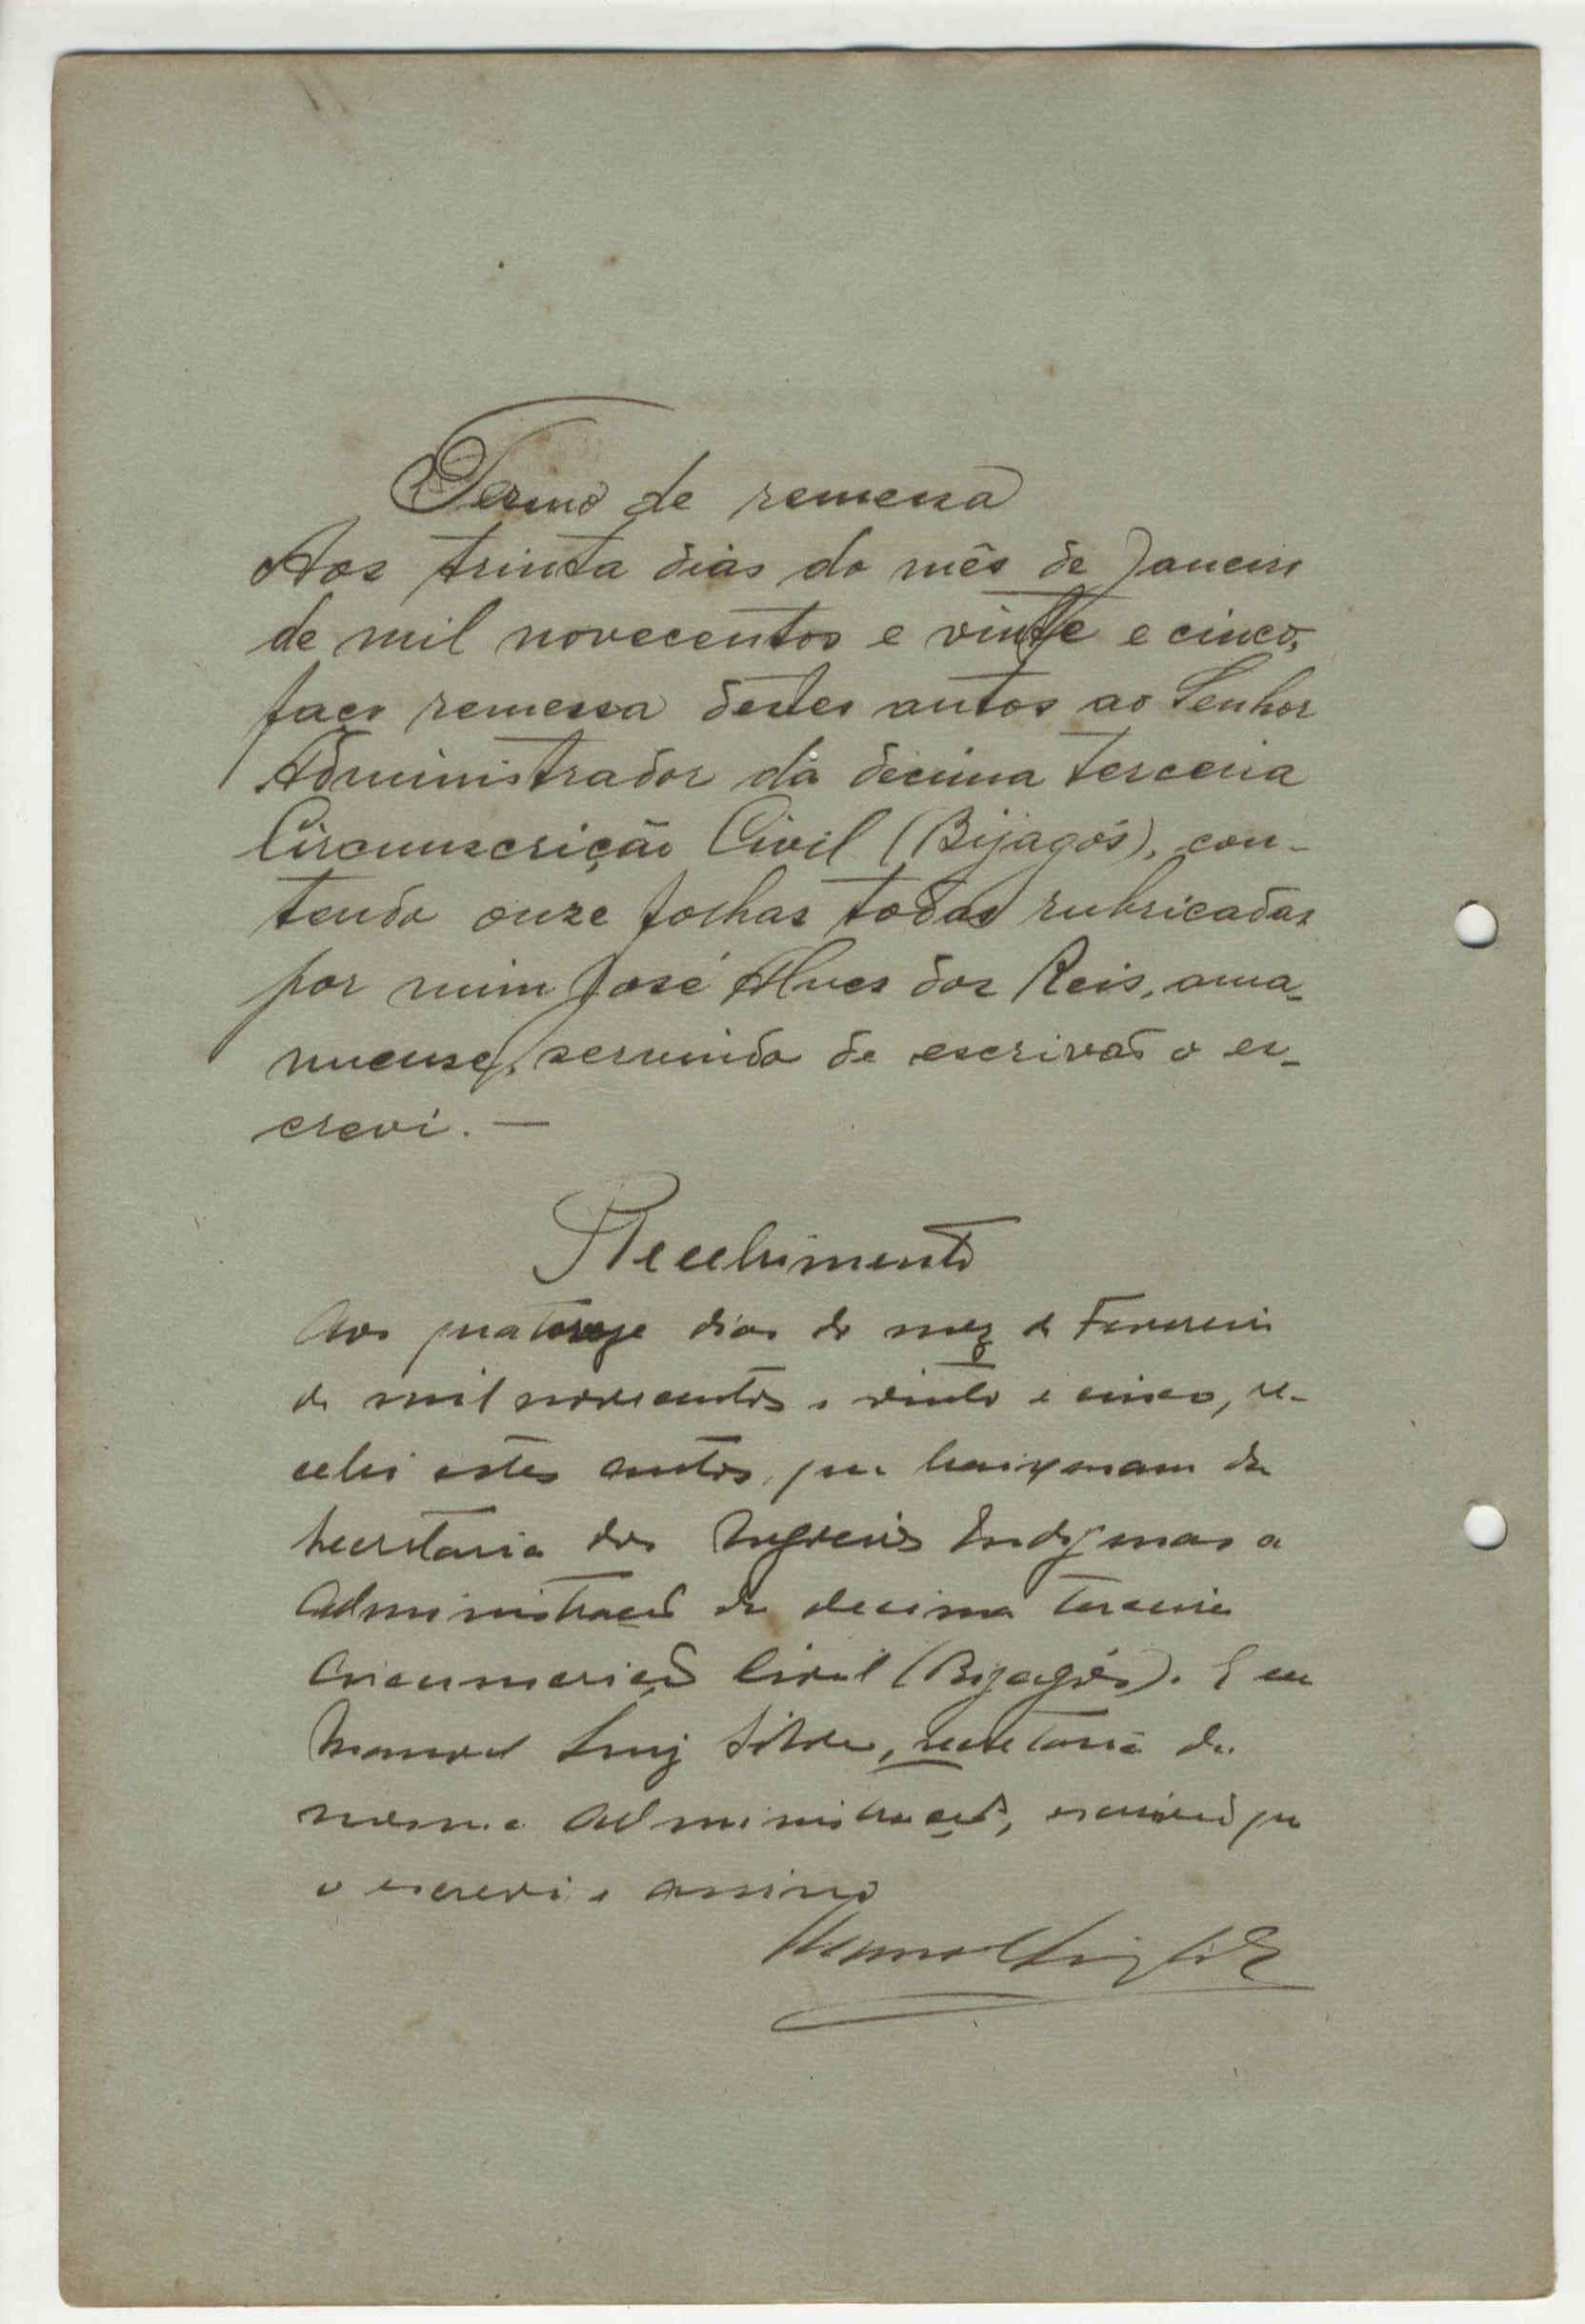 Termo de remessa
Aos trinta dias do mês de Janeiro
de mil novecentos e vinte e cinco,
faço remessa destes autos ao Senhor
Administrador da decima terceira
Circunscrição Civil (Bijagós), con-
tendo onze folhas todas rubricadas
por mim José Alves dos Reis, ama-
nuense, servindo de escrivão o es-
crevi. —
Recebimento
Aos quatorze dias do mez de Fevereiro
de mil novecentos e vinte e cinco, re-
cebi estes autos, que baixaram da
Secretaria dos Negocios Indigenas a
Administração da decima terceira
Circunscrição Civil (Bijagós). E eu
Manoel Luiz Silva, secretario da
mesma Administração, escrivão que
o escrevi e assino
Manoel Luiz Silva